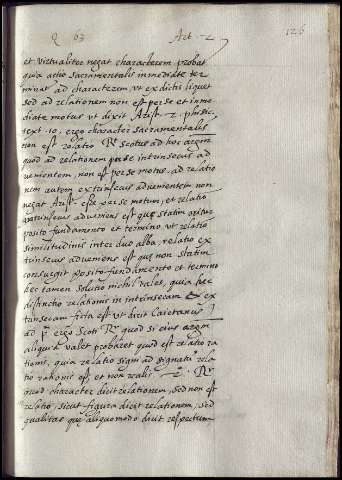 Q 63 Art. 2 126
et virtualiter negat characterem probat
quia actio sacramentalis immediate ter
minat ad characterem, vt ex dictis liquet
sed ad relationem non est per se et imme
diate motus vt dixit Arist. 2. phisic.
text. 10, ergo character sacramentalis
non est relatio Rr Scotus ad hoc argm
quod ad relationem per se intrinsecus ad
uenientem, non est per se motus, ad relatio
nem autem extrinsecus aduenientem non
negat Arist. esse per se motum, et relatio
intrinsecus adueniens est quę statim oritur
posito fundamento et termino, vt relatio
similitudinis inter duo alba, relatio ex
trinsecus adueniens est quę non statim
consurgit posito fundamento et termino
hec tamen solutio nichil valet, quia hec
distinctio relationis in intrinsecam & ex
trinsecam ficta est vt dicit Caietanus
ad p ergo Scoti Rr quod si eius argm
aliquid valet probaret quod est relatio ra
tionis, quia relatio signi ad signatu rela
tio rationis est, et non realis 2. Rr
quod character dicit relationem, sed non est
relatio, sicut figura dicit relationem, sed
qualitas quę aliquomodo dicit respectum